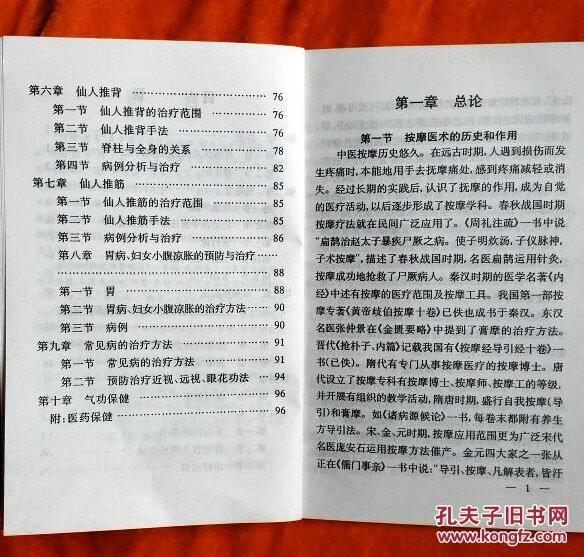 第六章　仙人推背 ………………………… 76
第一节　仙人推背的治疗范围 ………… 76
第二节　仙人推背手法 ………………… 76
第三节　脊柱与全身的关系 …………… 78
第四节　病例分析与治疗 ……………… 82
第七章　仙人推筋 ………………………… 85
第一节　仙人推筋的治疗范围 ………… 85
第二节　仙人推筋手法 ………………… 85
第三节　病例分析与治疗 ……………… 86
第八章　胃病、妇女小腹凉胀的预防与治疗 ……
………………………………………… 88
第一节　胃 ……………………………… 88
第二节　胃病、妇女小腹凉胀的治疗方法 … 90
第三节　病例 …………………………… 90
第九章　常见病的治疗方法 ……………… 91
第一节　常见病的治疗方法 …………… 91
第二节　预防治疗近视、远视、眼花功法 … 94
第十章　气功保健 ………………………… 96
附:医药保健 ……………………………… 96
第一章　总论
第一节　按摩医术的历史和作用
中医按摩历史悠久。在远古时期,人遇到损伤而发
生疼痛时,本能地用手去抚摩痛处,感到疼痛减轻或消
失。经过长期的实践后,认识了抚摩的作用,成为自觉
的医疗活动,以后逐步形成了按摩学科。春秋战国时期
按摩疗法就在民间广泛应用了。《周礼注疏》一书中说
"扁鹊治赵太子暴疾尸厥之病。使子明炊汤,子仪脉神,
子术按摩",描述了春秋战国时期,名医扁鹊运用针灸、
按摩成功地抢救了尸厥病人。秦汉时期的医学名著《内
经》中述有按摩的医疗范围及按摩工具。我国第一部按
摩专著《黄帝歧伯按摩十卷》已佚也成书于秦汉。东汉
名医张仲景在《金匮要略》中提到了膏摩的治疗方法。
晋代《抢朴子、内篇》记载我国有《按摩经导引经十卷》一
书(已佚)。隋代有专门从事按摩医疗的按摩博士。唐
代设立了按摩专科有按摩博士、按摩师、按摩工的等级,
并开展有组织的教学活动,隋唐时期,盛行自我按摩(导
引)和膏摩。如《诸病源候论》一书,每卷末都附有养生
方导引法。宋、金、元时期,按摩应用范围更为广泛宋代
名医庞安石运用按摩方法催产。金元四大家之一张从
正在《儒门事亲》一书中说:"导引、按摩、凡解表者,皆汗
— 1 —
孔夫子旧书网
www.kongfz.com